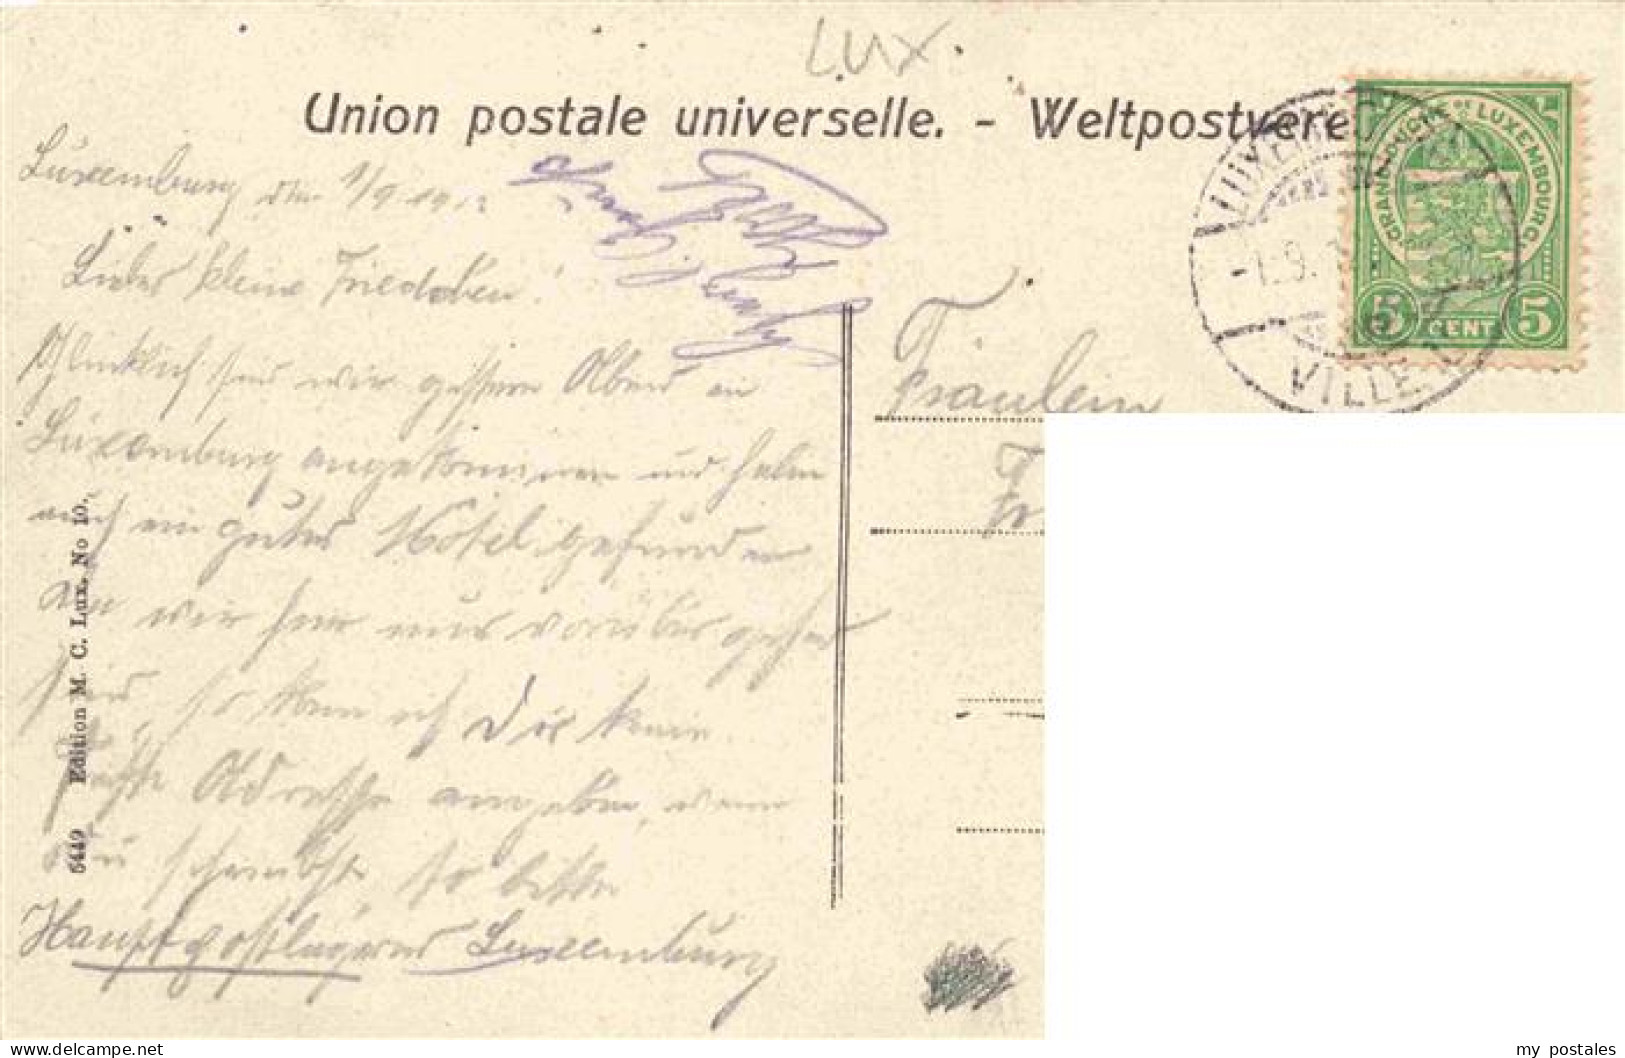 LUX.
Union postale universelle. - Weltpostvere
Luxemburg den 1/9.191
Liebes kleine Friedchen!
Glücklich sind wir gestern Abend in
Luxemburg angekommen und haben
auch ein gutes Hotel gefunden
wir hier nur vorüber gehend
sind, so kann ich Dir keine
Adresse angeben, wenn
Du schreibst, so bitte
Hauptpostlagernd Luxemburg
Gruß
Fräulein
Fr
6449 Edition M. C. Lux. No 10.
GRAND-DUCHÉ DE LUXEMBOURG
5 CENT. 5
LUXEMBO
-1.9.
VILLE
my_postales